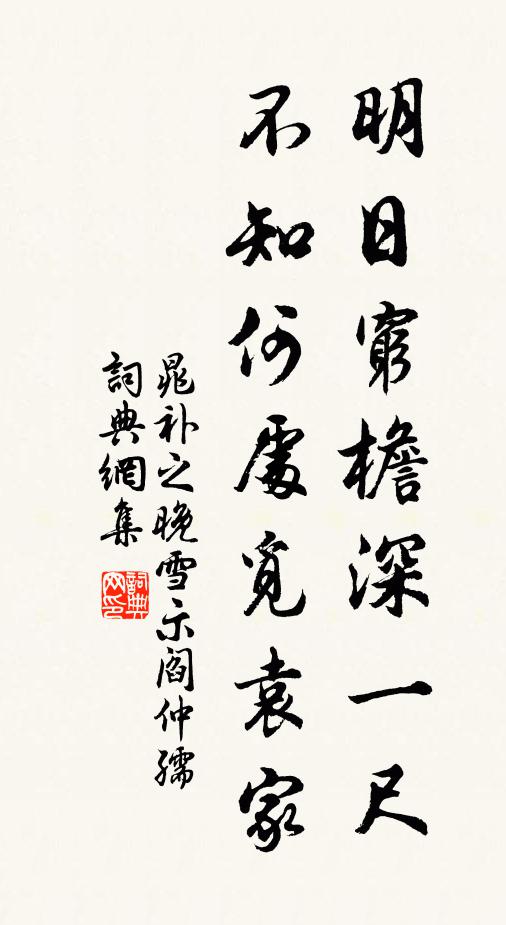 明日窮檐深一尺
不知何處覓袁家
晁补之晚雪示阎仲孺
詞典網集
詞典网印